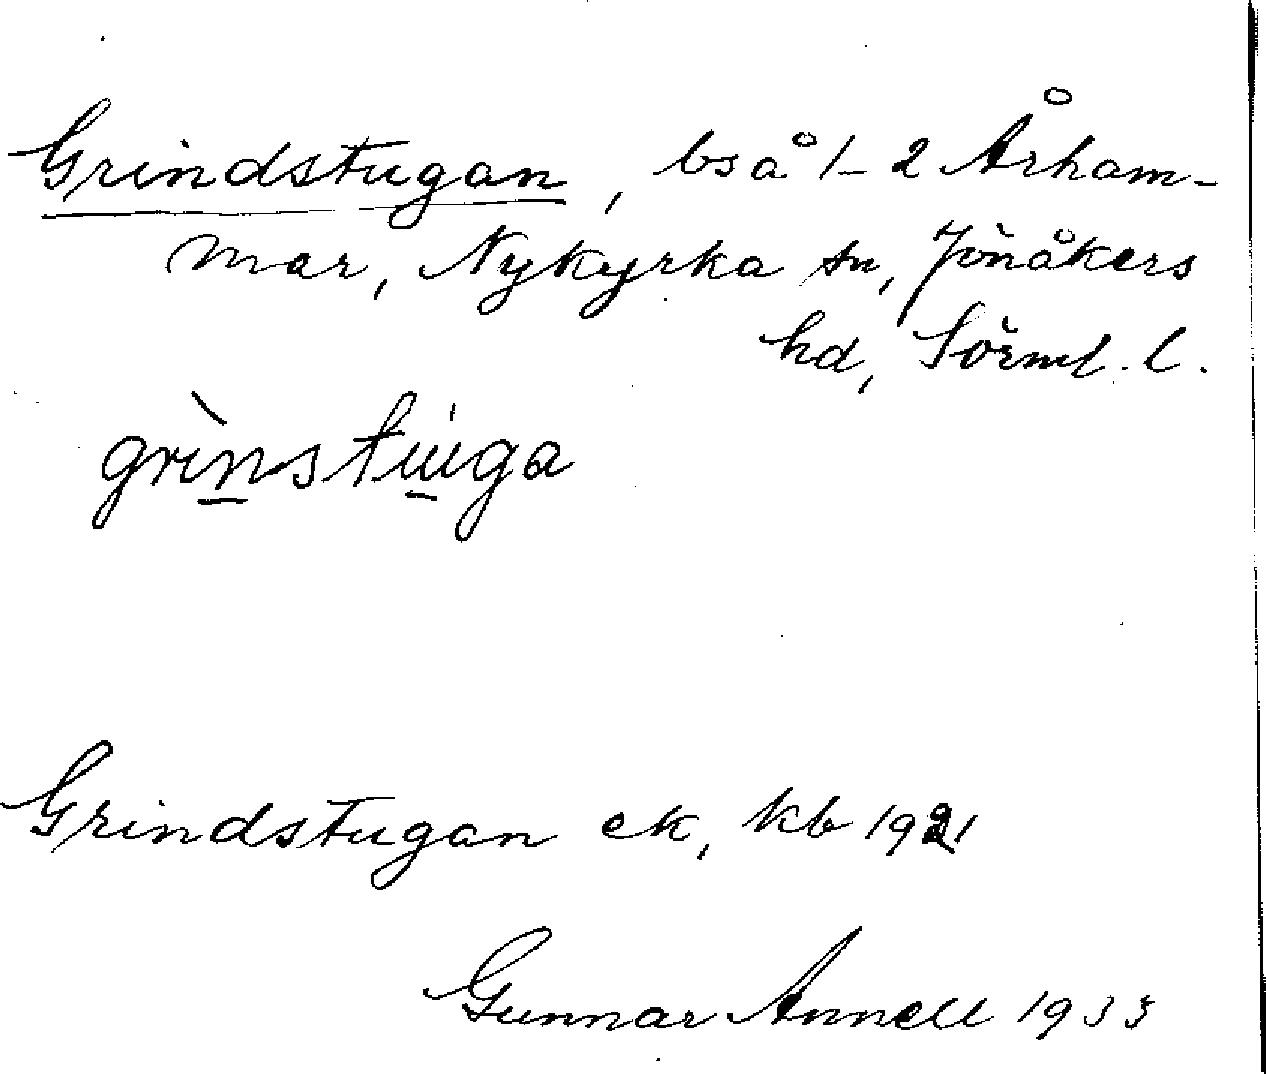 Grindstugan, bs å 1-2 Årham-
mar, Nykyrka sn, Jönåkers
hd, Sörml. l.
grìnstu̇ga
Grindstugan ek, kb 1921
Gunnar Annell 1933